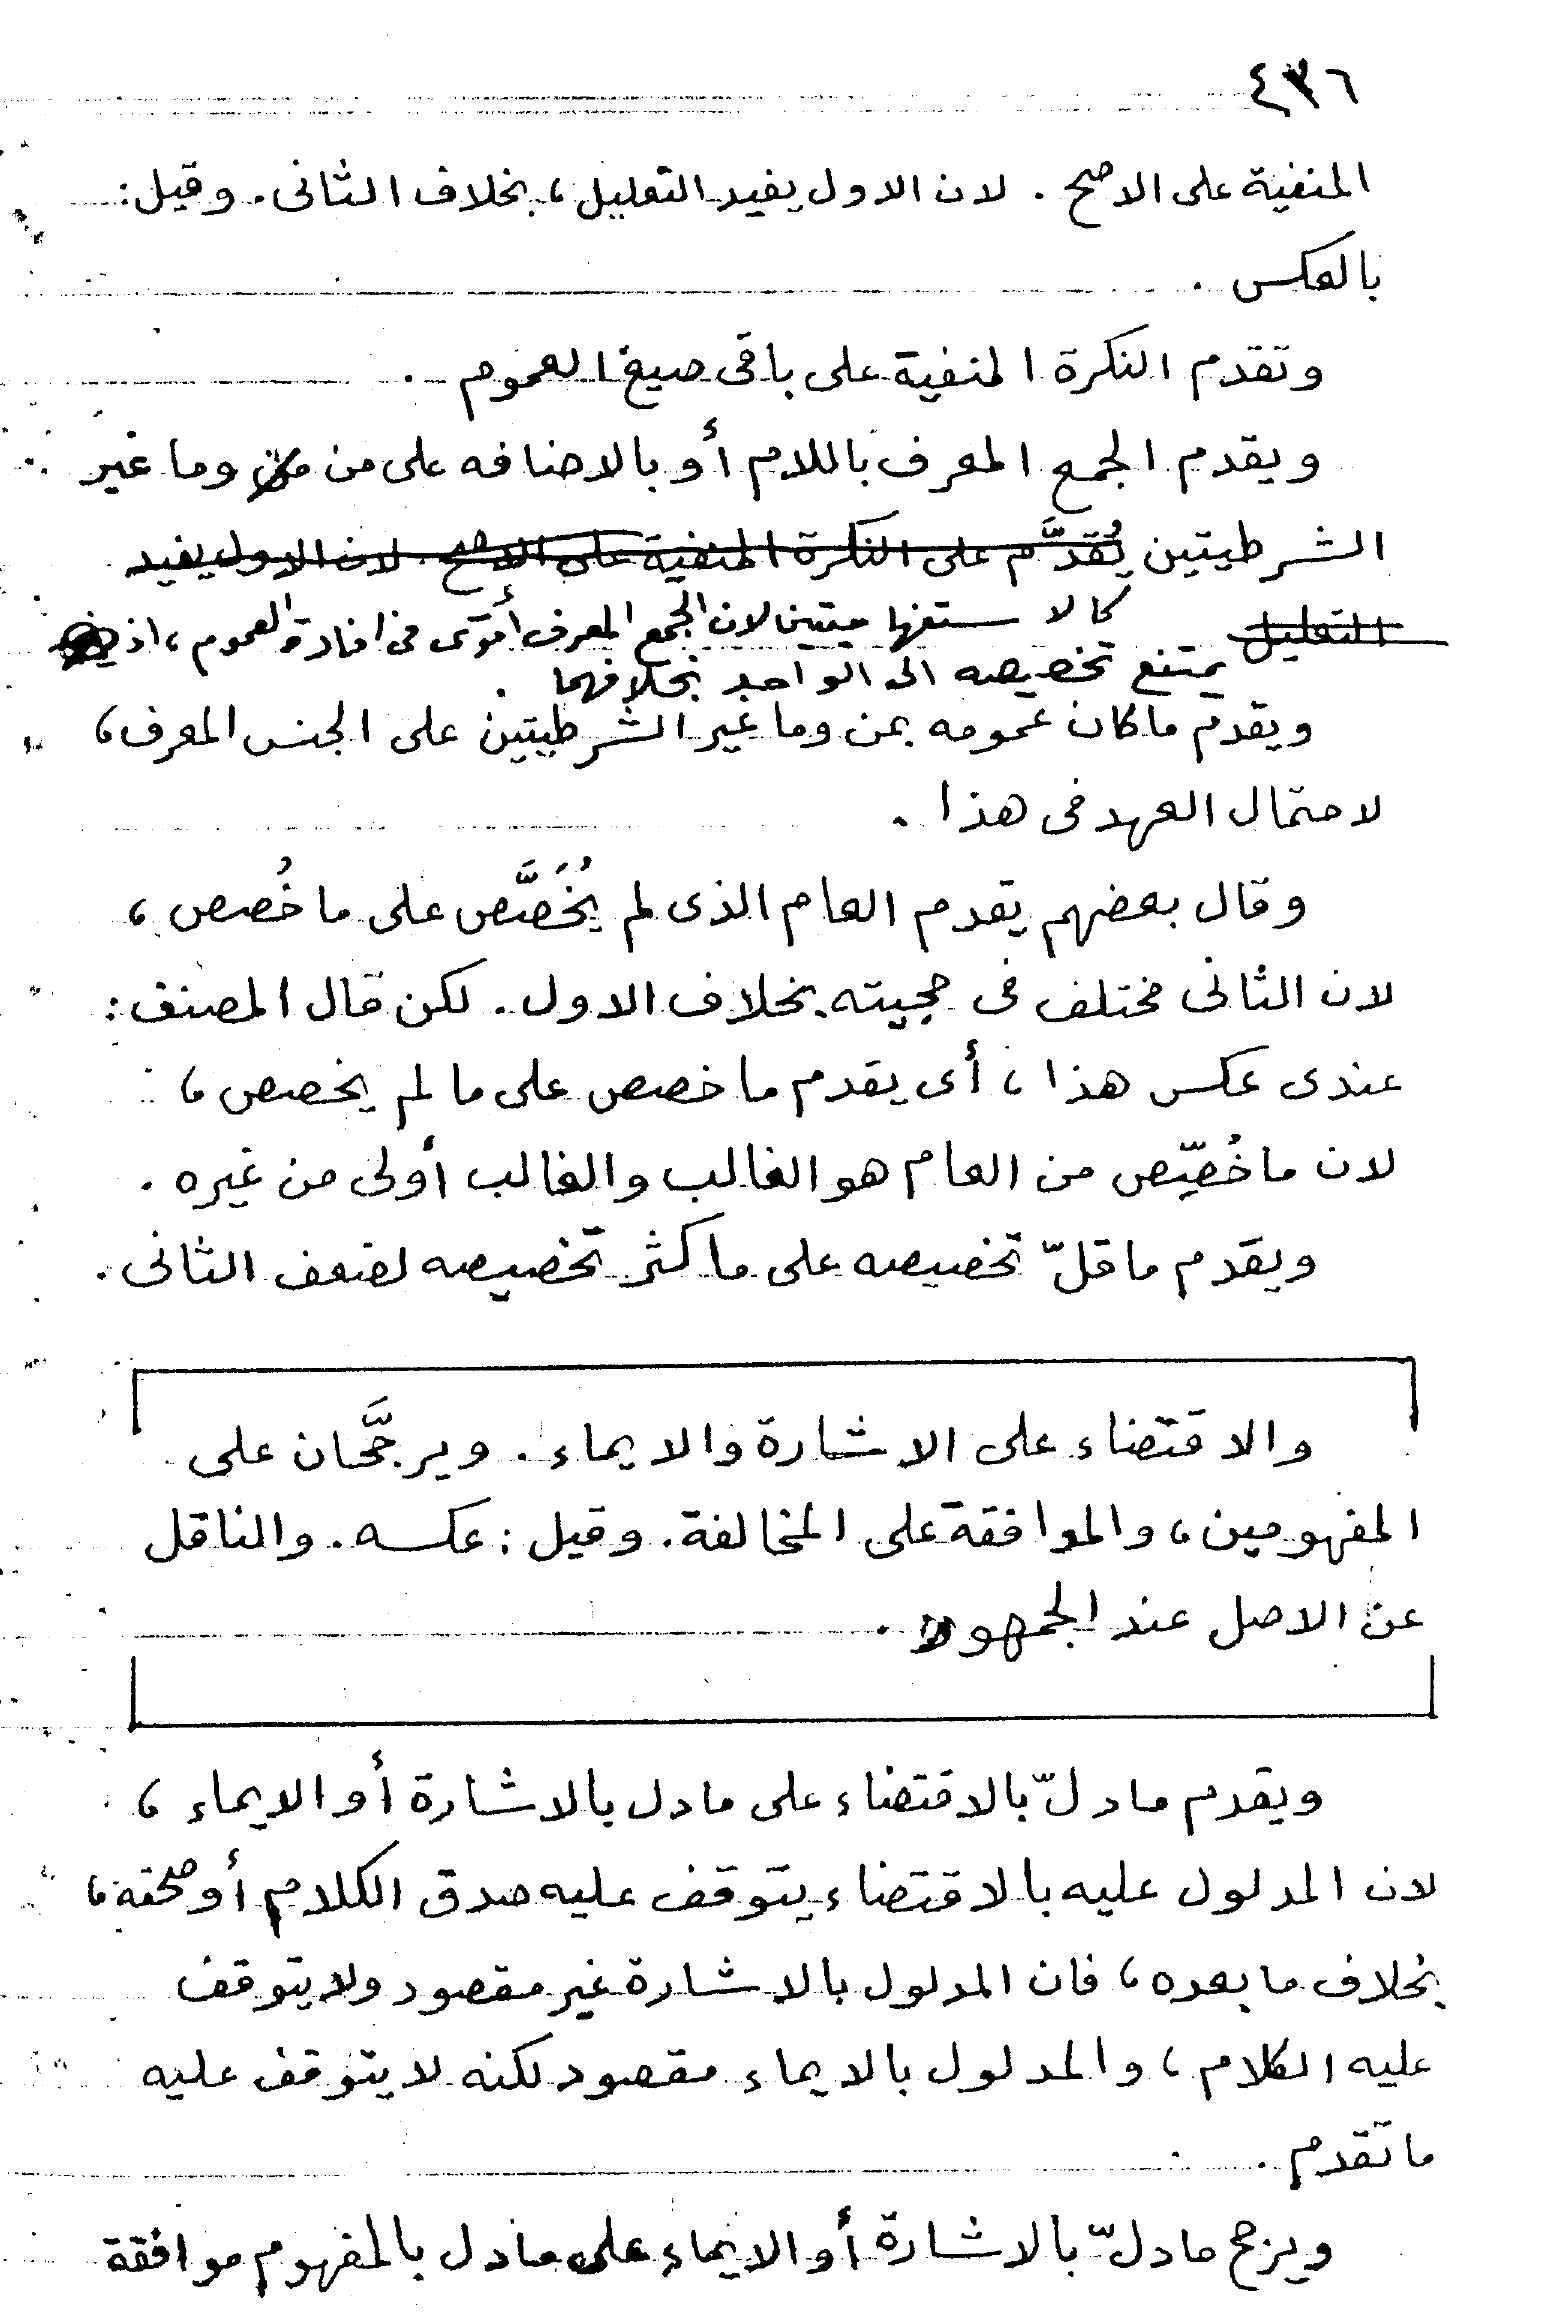 ٤٣٦
المنفية على الاصح . لان الاول يفيد التعليل، بخلاف الثانى . وقيل :
بالعكس .
وتقدم النكرة المنفية على باقى صيغ العموم .
ويقدم الجمع المعرف باللام أو بالاضافه على من وما غير
الشرطيتين يُقدَّم على النكرة المنفية على الاصح . لان الاول يفيد
التعليل كالاستفهاميتين لان الجمع المعرف أقوى فى افادة العموم، اذ
يمتنع تخصيصه الى الواحد بخلافهما .
ويقدم ما كان عمومه بمن وما غير الشرطيتين على الجنس المعرف،
لاحتمال العهد فى هذا .
وقال بعضهم يقدم العام الذى لم يُخَصَّص على ما خُصص،
لان الثانى مختلف فى حجيته بخلاف الاول . لكن قال المصنف :
عندى عكس هذا، أى يقدم ما خصص على ما لم يخصص،
لان ما خُصِّص من العام هو الغالب والغالب أولى من غيره .
ويقدم ما قلّ تخصيصه على ما كثر تخصيصه لضعف الثانى .
والاقتضاء على الاشارة والايماء . ويرجَّحان على
المفهومين، والموافقة على المخالفة . وقيل : عكسه . والناقل
عن الاصل عند الجمهور .
ويقدم ما دلّ بالاقتضاء على مادل بالاشارة أو الايماء،
لان المدلول عليه بالاقتضاء يتوقف عليه صدق الكلام أو صحته،
بخلاف ما بعده، فان المدلول بالاشارة غير مقصود ولا يتوقف
عليه الكلام، والمدلول بالايماء مقصود لكنه لا يتوقف عليه
ما تقدم .
ويرجح مادلّ بالاشارة أو الايماء على مادل بالمفهوم موافقة